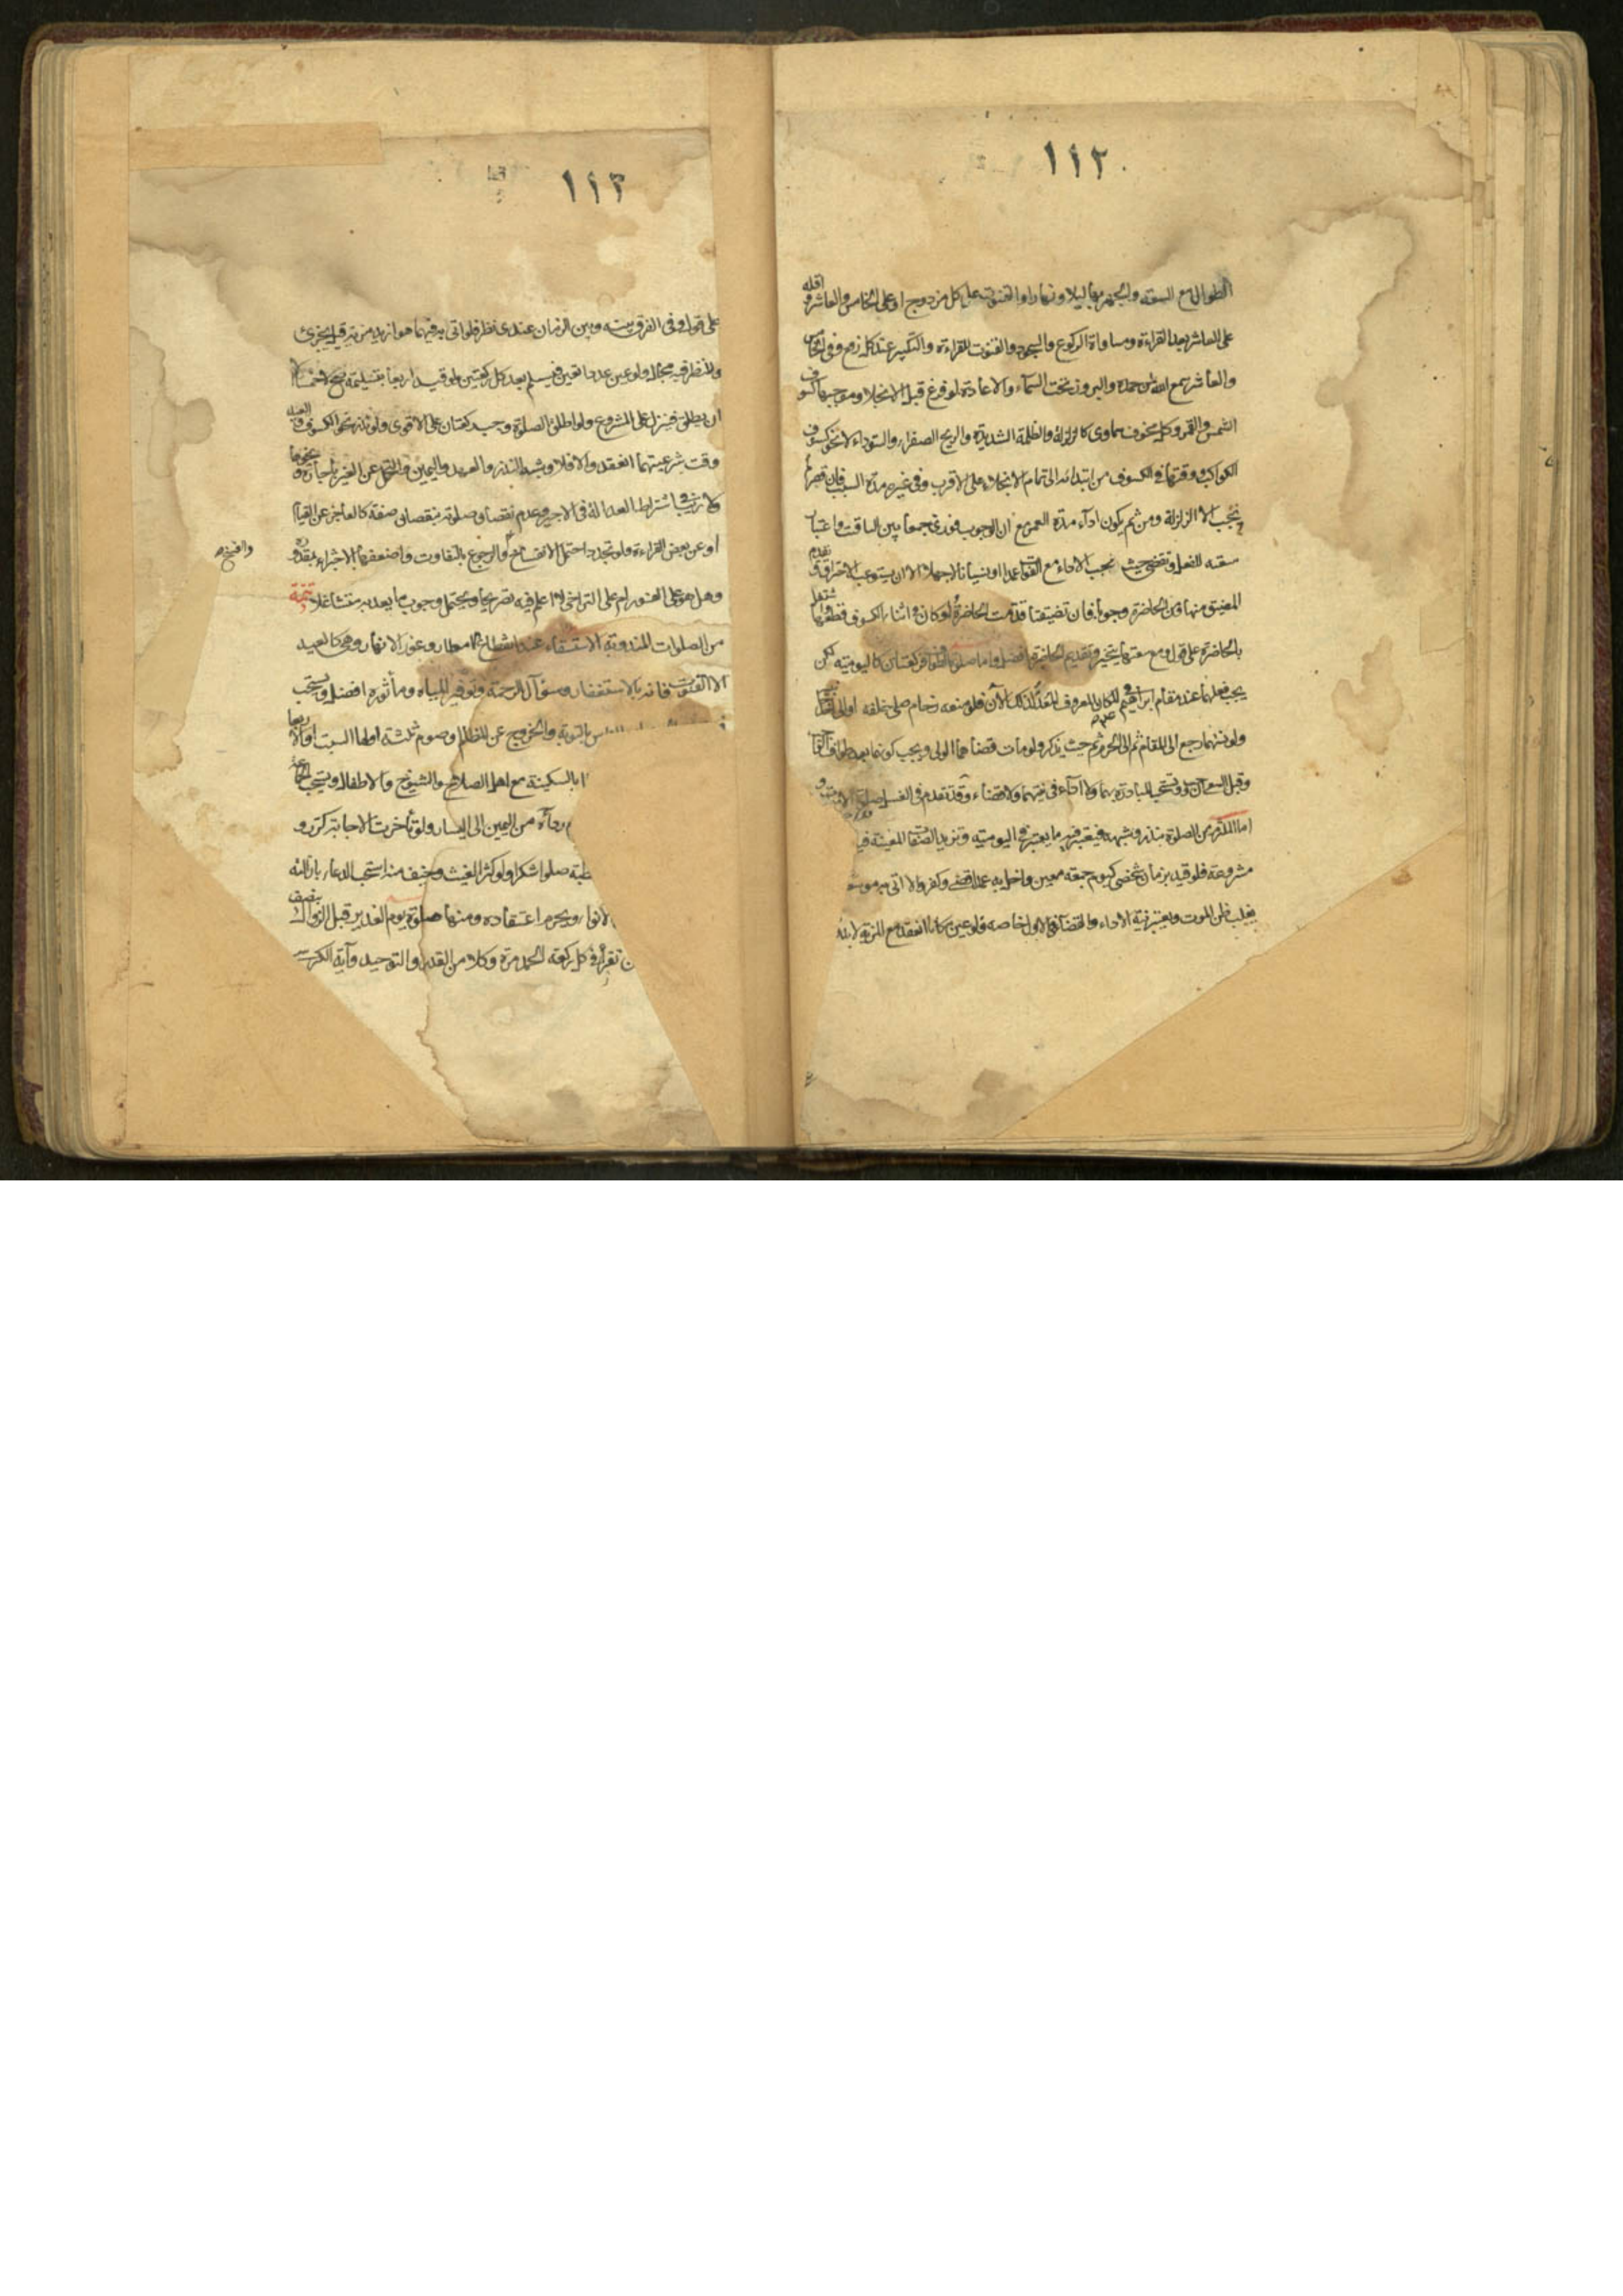 ١١٢
الطوال مع السعة والجهر بها ليلا ونهارا والقنوت على كل مزدوج او على الخامس والعاشر واقله
على العاشر بعد القراءة ومساواة الركوع والسجود والقنوت للقراءة والتكبير عند كل رفع وفى الخامس
والعاشر سمع الله لمن حمده والبروز تحت السماء والاعادة لو فرغ قبل الانجلاء وموجبها كسوف
الشمس والقمر وكل مخوف سماوى كالزلزلة والظلمة الشديدة والريح الصفراء والسوداء لا نحو كسوف
الكواكب ووقتها فى الكسوف من ابتدائه الى تمام الانجلاء على الاقرب وفى غيره مدة السبب فان قصر لم
يجب الا الزلزلة ومن ثم يكون اداء مدة العمر مع ان الوجوب فورى جمعا بين الباقت واعتبار
سعته للفعل وتقضى حيث يجب الاداء مع الفوات عمدا او نسيانا لا جهلا الا ان يستوعب الاحتراق وتقدم
المضيق منها ومن الحاضرة وجوبا فان تضيقتا قدمت الحاضرة ولو كان فى اثناء الكسوف قطعها واشتغل
بالحاضرة على قول ومع سعتهما يتخير وتقديم الحاضرة افضل واما صلوة الطواف فركعتان كاليومية لكن
يجب فعلهما عند مقام ابراهيم ع فى المكان المعروف المعد لذلك الآن فلو منعه زحام صلى خلفه او الى
ولو نسيهما رجع الى المقام ثم الى الحرم ثم حيث يذكر ولو مات قضاهما الولى ويجب كونهما بعد طواف
وقبل السعى ان وجد وتستحب المبادرة بهما ولا اداء فى نيتهما ولا قضاء وقد تقدم فى
اما الملتزم من الصلوة بنذر وشبهه فيعتبر فيه ما يعتبر فى اليومية وتزيد الصفات المعينة فيه
مشروعة فلو قيد بزمان شخصى كيوم جمعة معين واخل به عمدا قضى وكفر والا اتى به موسعا
يغلب ظن الموت ويعتبر نية الاداء والقضاء فى الاول خاصة ولو عين مكانا انعقد مع المزية لا بدونها
١١٣
على قول وفى الفرق بينه وبين الزمان عندى نظر فلو اتى به فيما هو ازيد مزية قيل يجزئ
وللنظر فيه مجال ولو عين عددا تعين فيسلم بعد كل ركعتين ولو قيد اربعا بتسليمة صح لا خمسا الا
ان يطلق فينزل على المشروع ولو اطلق الصلوة وجب ركعتان على الاقوى ولو نذر نحو الكسوف والعيد
وقت شرعيتهما انعقد والا فلا وشبه النذر والعهد واليمين والتحمل عن الغير باجارة ونحوها
ولا ريب فى اشتراط العدالة فى الاجير وعدم نقصان صلوته بنقصان صفة كالعاجز عن القيام
او عن بعض القراءة ولو تجدد احتمل الانفساخ والرجوع بالتفاوت واضعفها الاجتزاء بمقدوره
وافسخ خ
وهل هو على الفور ام على التراخى لا اعلم فيه تصريحا ويحتمل وجوب ما يعد به متشاغلا تتمة
من الصلوات المندوبة الاستسقاء عند انقطاع الامطار وغور الانهار وهى كالعيد
الا القنوت فانه بالاستغفار وسؤال الرحمة وتوفير المياه ومأثوره افضل ويستحب
الناس بالتوبة والخروج عن المظالم وصوم ثلثة اولها السبت او الاربعاء
بالسكينة مع اهل الصلاح والشيوخ والاطفال ويستحب الجماعة
رداءه من اليمين الى اليسار ولو تأخرت الاجابة كرر و
خطبة صلوا شكرا ولو كثر الغيث وخيف منه استحب الدعاء بازالته
الانواء ويحرم اعتقاده ومنها صلوة يوم الغدير قبل الزوال بنصف
ن تقرأ فى كل ركعة الحمد مرة وكلا من القدر والتوحيد وآية الكرسى